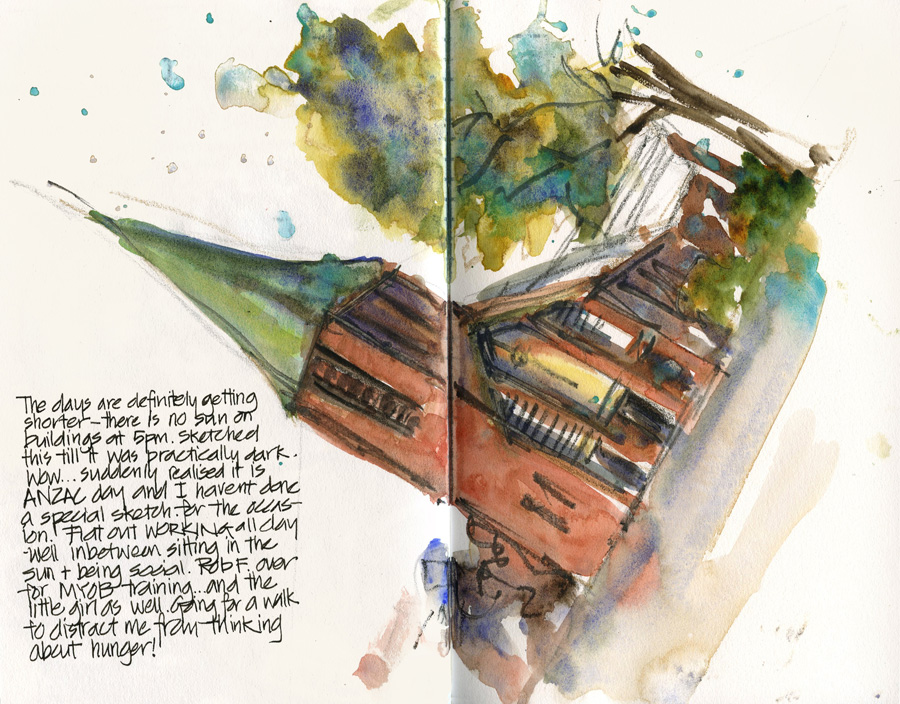 The days are definitely getting
shorter - there is no sun on
buildings at 5pm. Sketched
this till it was practically dark.
Wow... suddenly realised it is
ANZAC day and I havent done
a special sketch for the occas-
ion! Flat out WORKING all day
-well inbetween sitting in the
sun + being social. Rob F. over
for MYOB training... and the
little girl as well. Going for a walk
to distract me from thinking
about hunger!